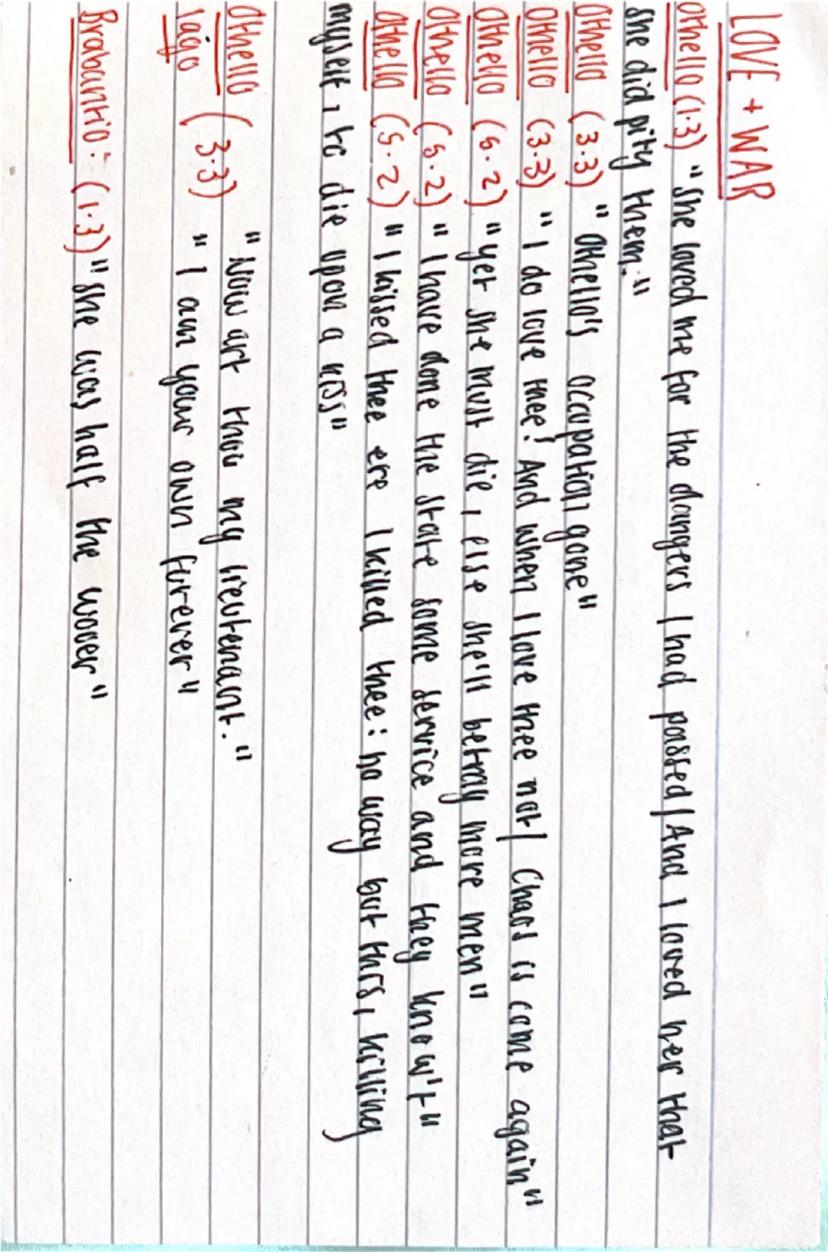 LOVE + WAR
Othello (1.3) "She loved me for the dangers I had passed/And I loved her that
she did pity them."
Othello (3.3) "Othello's occupation gone"
Othello (3.3) "I do love thee! And when I love thee not/ Chaos is come again"
Othello (5.2) "yet she must die, else she'll betray more men"
Othello (5.2) "I have done the state some service and they know't"
Othello (5.2) "I kissed thee ere I killed thee: no way but this, killing
myself, to die upon a kiss"
Othello (3.3) "Now art thou my lieutenant."
Iago "I am your own forever"
Brabantio: (1.3) "she was half the wooer"